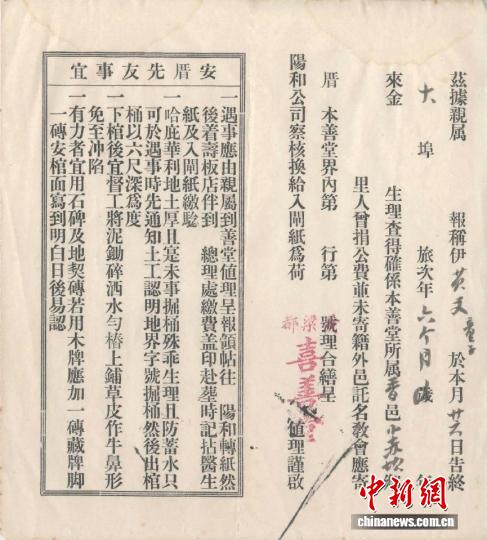 茲據親属 報稱伊 英文 於本月廿六日告終
大埠 旅次年六个月
來金 生理查得確係本善堂所属香邑
里人曾捐公費並未寄籍外邑託名教會應寄
厝 本善堂界內第 行第 號理合繕呈
陽和公司察核換給入閘紙為荷
都 梁
喜善堂 值理謹啟
安厝先友事宜
一遇事應由親属到善堂值理呈報領帖往 陽和轉紙然
後着壽板店伴到 總理處繳費盖印赴塟時記拈醫生
紙及入閘紙繳驗
一哈庇華利地土厚且寔未事掘桶殊乖生理且防蓄水只
可於遇事時先通知土工認明地界字號掘桶然後出棺
桶以六尺深爲度
一下棺後宜督工將泥鋤碎洒水勻樁上鋪草皮作牛鼻形
免至冲陷
一有力者宜用石碑及地契磚若用木牌應加一磚藏牌脚
一磚安棺面寫到明白日後易認
中新网
chinanews.com.cn